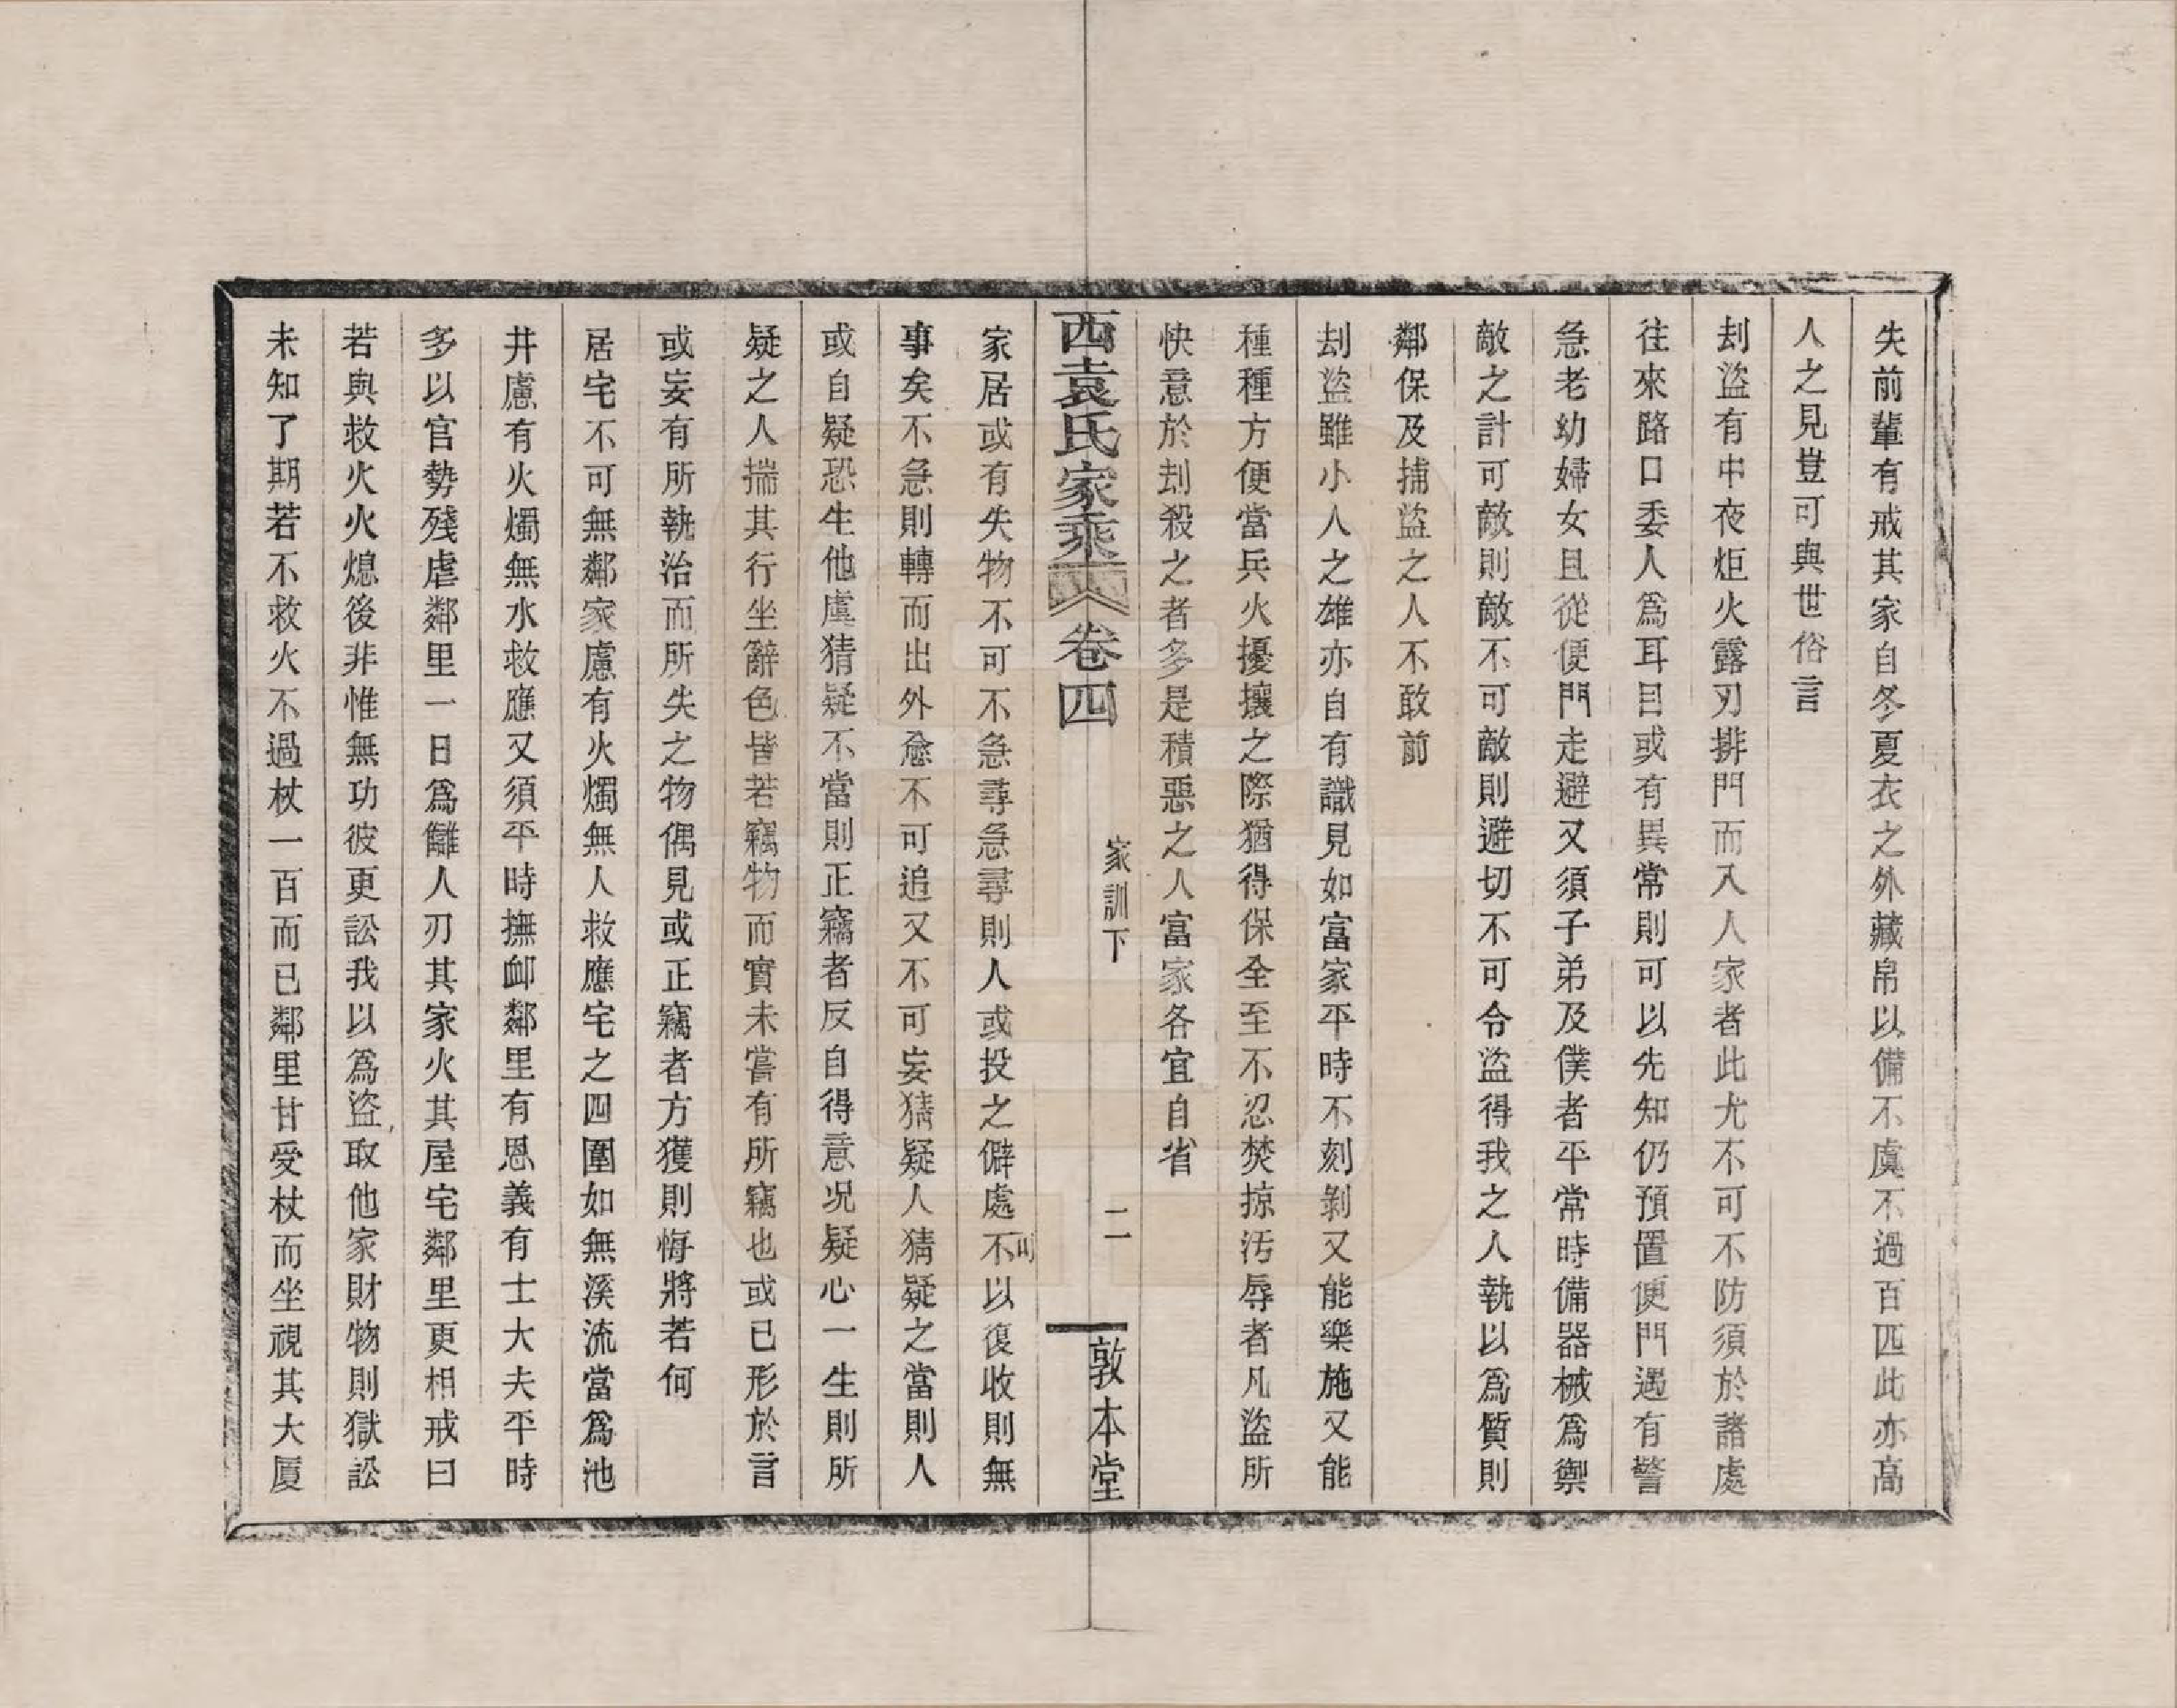 失前輩有戒其家自冬夏衣之外藏帛以備不虞不過百匹此亦高
人之見豈可與世俗言
刦盜有中夜炬火露刃排門而入人家者此尤不可不防須於諸處
往來路口委人爲耳目或有異常則可以先知仍預置便門遇有警
急老幼婦女且從便門走避又須子弟及僕者平常時備器械爲禦
敵之計可敵則敵不可敵則避切不可令盜得我之人執以爲質則
鄰保及捕盜之人不敢前
刦盜雖小人之雄亦自有識見如富家平時不刻剝又能樂施又能
種種方便當兵火擾攘之際猶得保全至不忍焚掠污辱者凡盜所
快意於刦殺之者多是積惡之人富家各宜自省
西袁氏家乘 卷四 家訓下 二 敦本堂
家居或有失物不可不急尋急尋則人或投之僻處不以復收則無
事矣不急則轉而出外愈不可追又不可妄猜疑人猜疑之當則人
或自疑恐生他虞猜疑不當則正竊者反自得意況疑心一生則所
疑之人揣其行坐辭色皆若竊物而實未嘗有所竊也或已形於言
或妄有所執治而所失之物偶見或正竊者方獲則悔將若何
居宅不可無鄰家慮有火燭無人救應宅之四圍如無溪流當爲池
井慮有火燭無水救應又須平時撫卹鄰里有恩義有士大夫平時
多以官勢殘虐鄰里一日爲讎人刃其家火其屋宅鄰里更相戒曰
若與救火火熄後非惟無功彼更訟我以爲盜取他家財物則獄訟
未知了期若不救火不過杖一百而已鄰里甘受杖而坐視其大厦